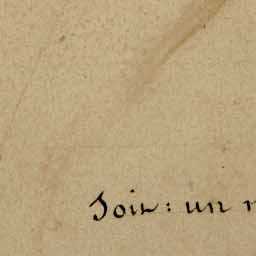 Soit : un